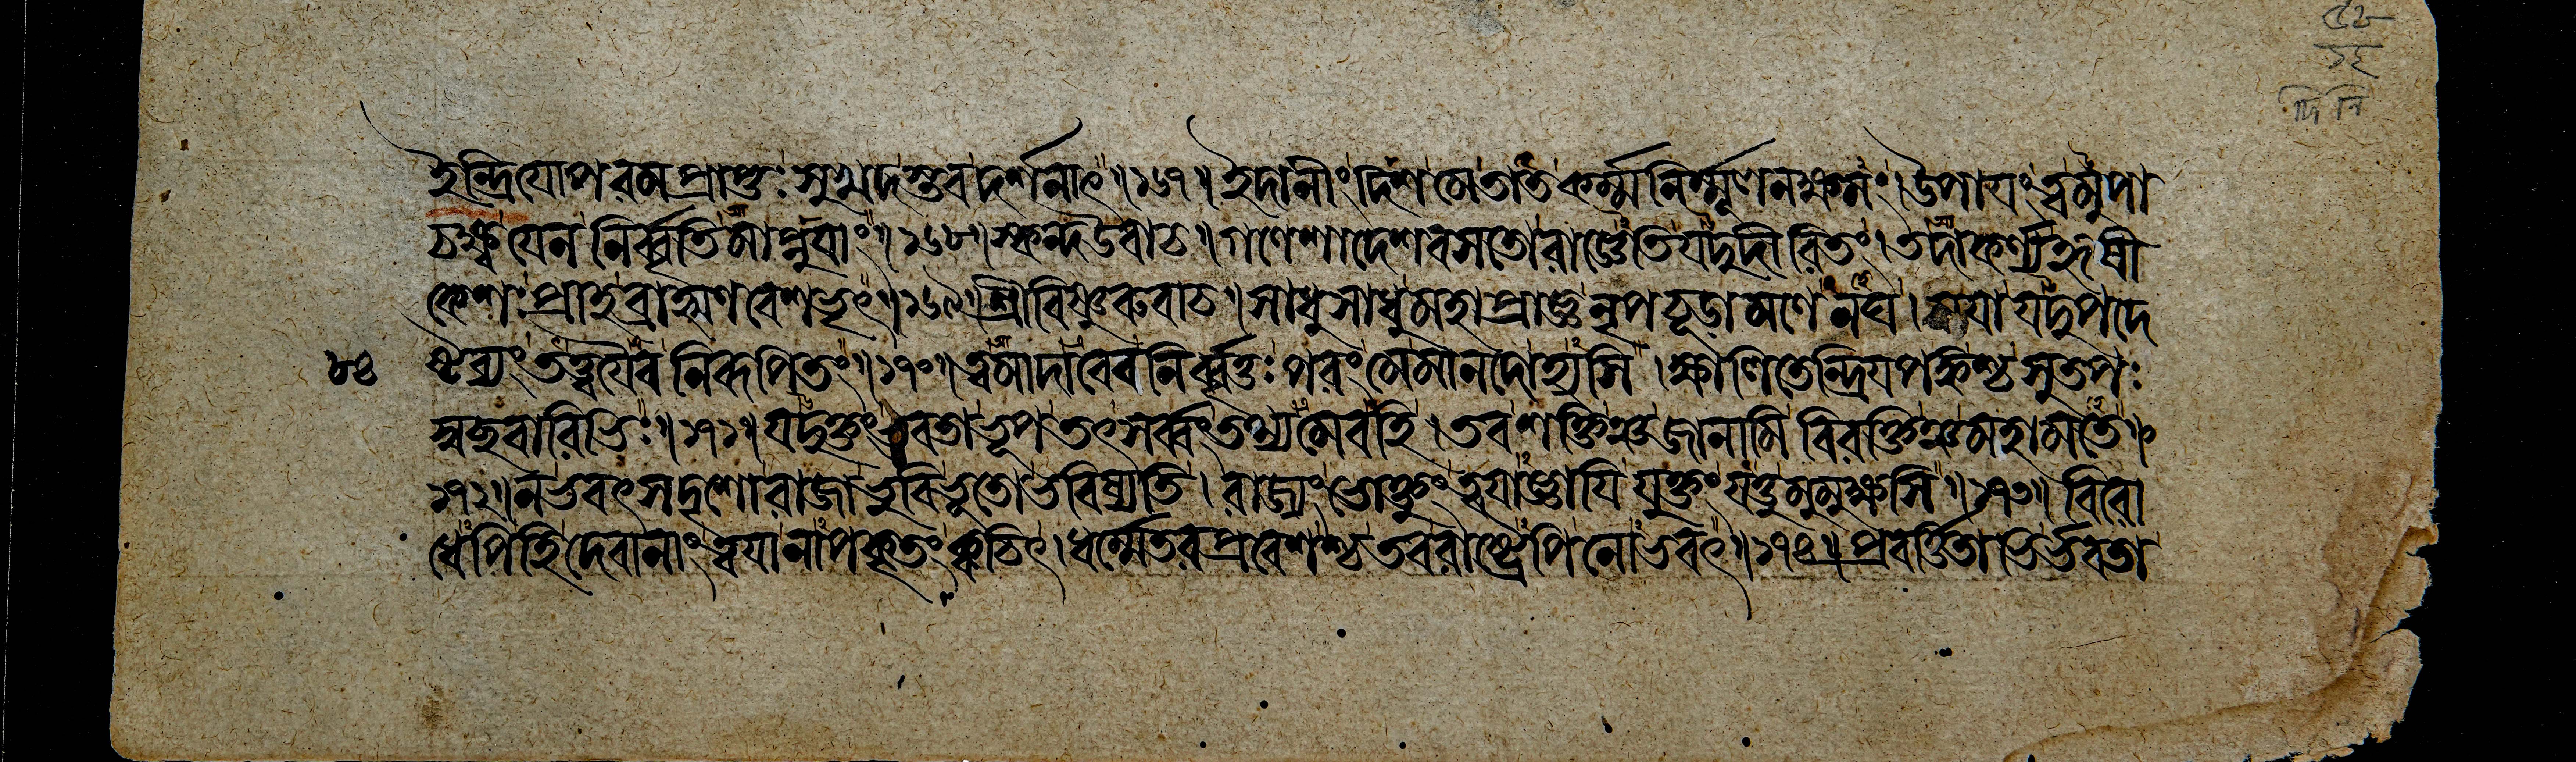 ইন্দ্রিযোপরমপ্রাপ্তঃ সুখদস্তবদর্শনাৎ॥১৬৭॥ ইদানীং দিশ মে তাত কর্ম্মনির্ম্মূলনক্ষমং। উপাযং ত্বমুপা
চক্ষ্ব যেন নির্ব্বৃতিমাপ্নুযাং॥১৬৮॥ স্কন্দ উবাচ॥ গণেশাদেশবসতো রাজ্ঞেতি যদুদীরিতং। তদাকর্ণ্য হৃষী
কেশঃ প্রাহ ব্রাহ্মণবেশভৃৎ॥১৬৯॥ শ্রীবিষ্ণুরুবাচ॥ সাধু সাধু মহাপ্রাজ্ঞ নৃপচূডামণেনঘ। মযা যদুপদে
৮৪ ষ্টব্যং তত্ত্বযৈব নিরূপিতং॥১৭০॥ ত্বমাদাবেব নির্ব্বৃত্তঃ পরং মে মানদোহ্যসি। ক্ষালিতেন্দ্রিযপঙ্কশ্চ সুতপঃ
স্বচ্ছবারিভিঃ॥১৭১॥ যদুক্তং ভবতা ভূপ তৎসর্ব্বং তথ্যমেব হি। তব শক্তিঞ্চ জানামি বিরক্তিঞ্চ মহামতে॥
১৭২॥ ন ভবৎসদৃশো রাজা ভুবি ভূতো ভবিষ্যতি। রাজ্যং ভোক্তুং ত্বযাজ্ঞাযি যুক্তং যত্তু মুমুক্ষসি॥১৭৩॥ বিরো
ধেপি হি দেবানাং ত্বযা নাপকৃতং ক্বচিৎ। ধর্ম্মেতরপ্রবেশশ্চ তব রাষ্ট্রেপি নো ভবৎ॥১৭৪॥ প্রবর্ত্তিতাভির্ভবতা